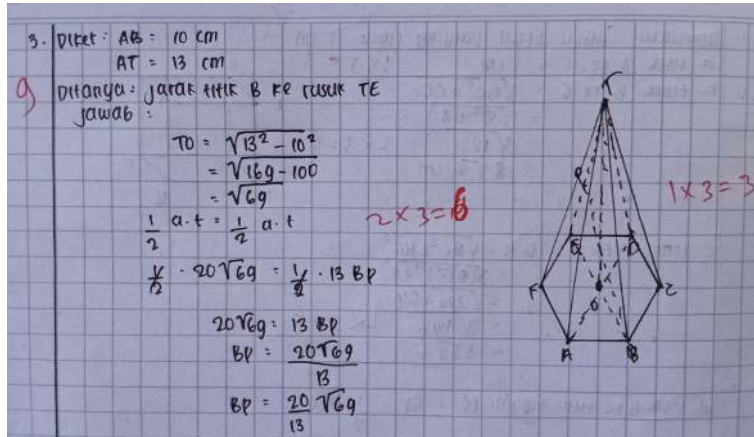 3. Diket : AB = 10 cm
AT = 13 cm
9
Ditanya : jarak titik B ke rusuk TE
jawab :
TO = √13² - 10²
= √169 - 100
= √69
2 × 3 = 6
1 × 3 = 3
1/2 a.t = 1/2 a.t
1/2 . 20√69 = 1/2 . 13 BP
20√69 = 13 BP
BP = 20√69/13
BP = 20/13 √69
T
P
E D
F O C
A B